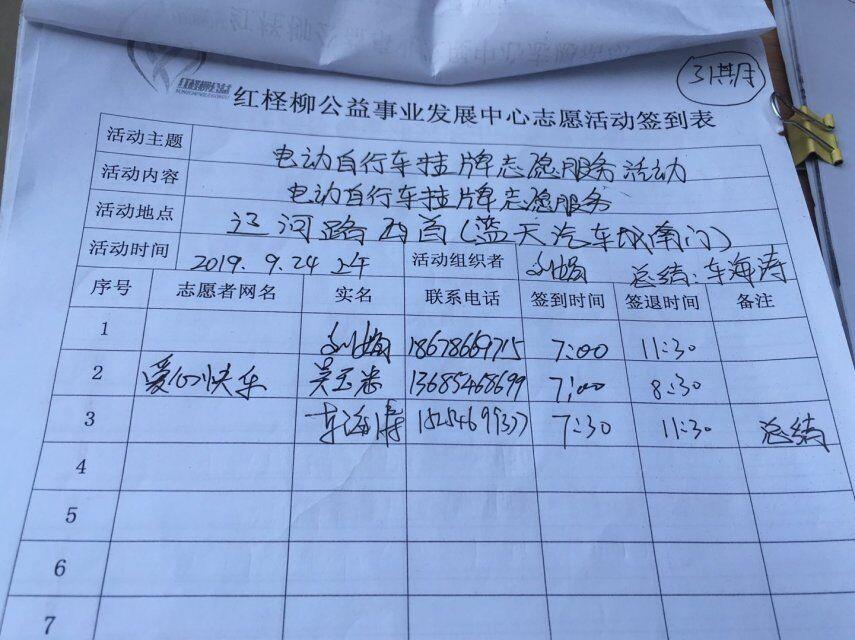 红柽柳公益
红柽柳公益事业发展中心志愿活动签到表
活动主题 电动自行车挂牌志愿服务活动
活动内容 电动自行车挂牌志愿服务
活动地点 江河路西首(蓝天汽车城南门)
活动时间 2019.9.24 上午 活动组织者 刘娟 总结:车海涛
序号 志愿者网名 实名 联系电话 签到时间 签退时间 备注
1 刘娟 18678669715 7:00 11:30
2 爱心快车 吴玉 13685468699 7:00 8:30
3 车海涛 15254699377 7:30 11:30 总结
4
5
6
7